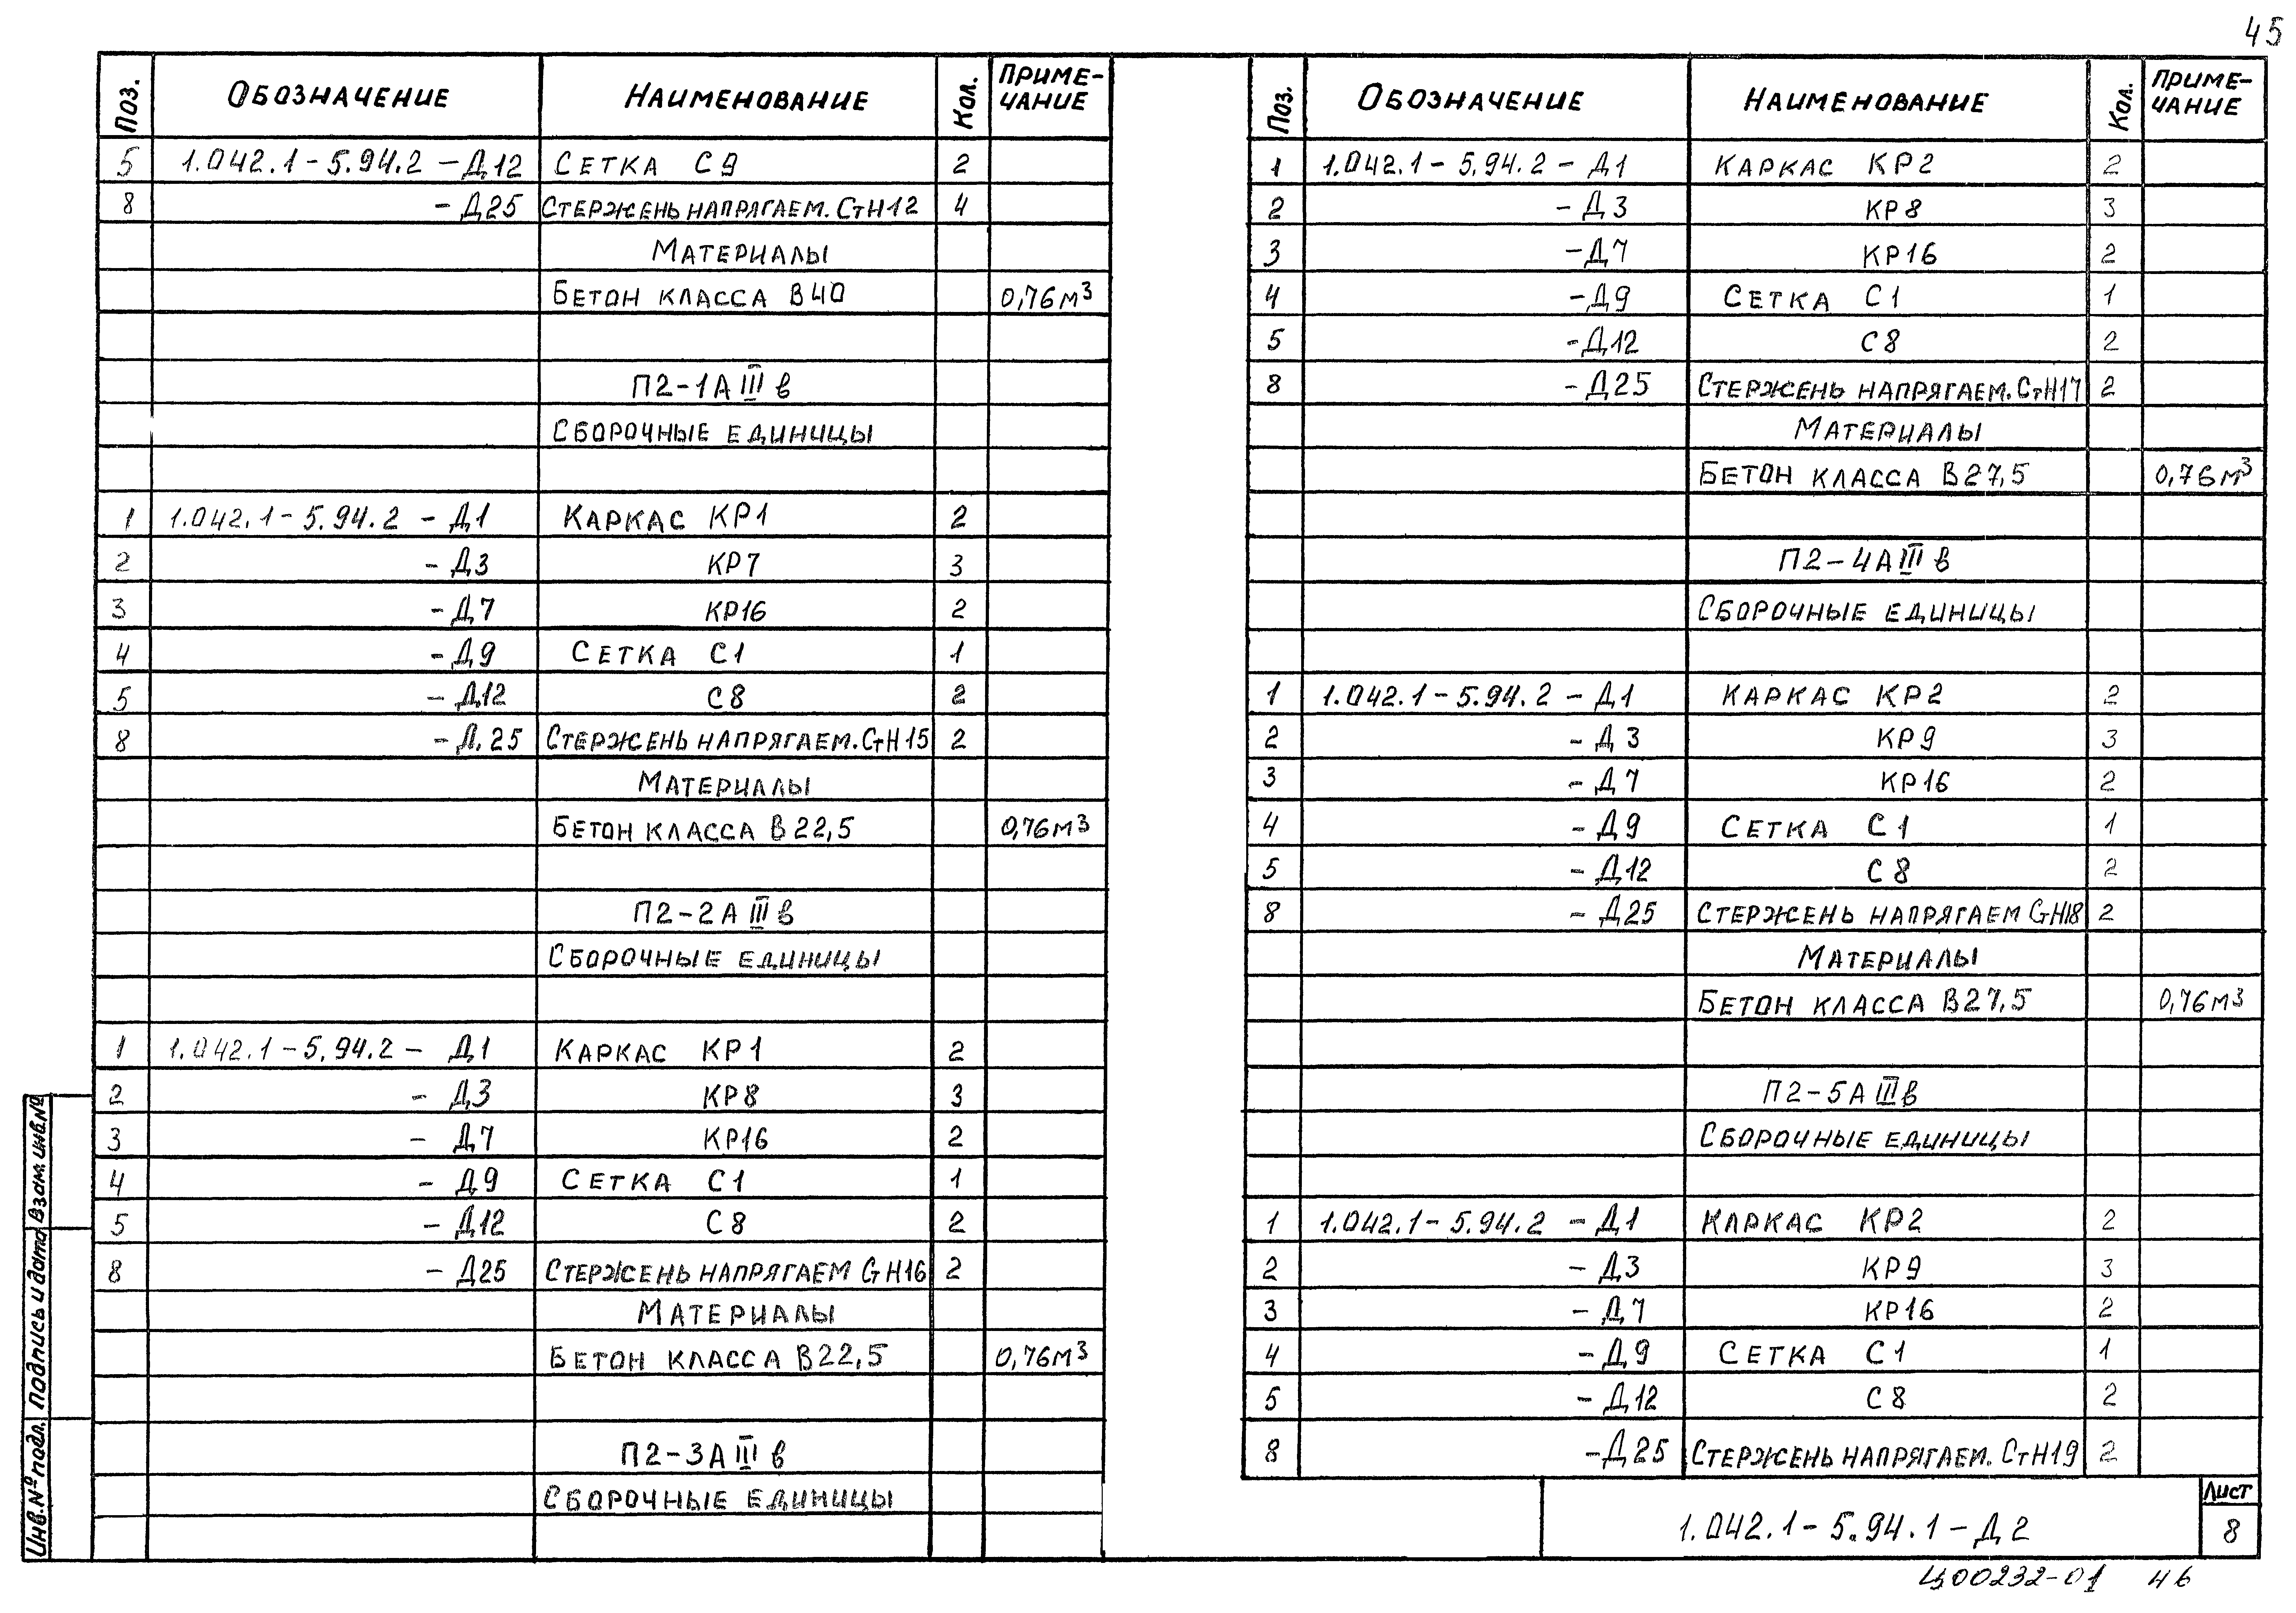 45
Поз. Обозначение Наименование Кол. Приме-
чание
5 1.042.1-5.94.2-Д12 Сетка С9 2
8 -Д25 Стержень напрягаем. СтН12 4
Материалы
Бетон класса В40 0,76м³
П2-1АIIIв
Сборочные единицы
1 1.042.1-5.94.2-Д1 Каркас КР1 2
2 -Д3 КР7 3
3 -Д7 КР16 2
4 -Д9 Сетка С1 1
5 -Д12 С8 2
8 -Д.25 Стержень напрягаем. СтН15 2
Материалы
Бетон класса В22,5 0,76м³
П2-2АIIIв
Сборочные единицы
1 1.042.1-5.94.2-Д1 Каркас КР1 2
2 -Д3 КР8 3
3 -Д7 КР16 2
4 -Д9 Сетка С1 1
5 -Д12 С8 2
8 -Д25 Стержень напрягаем СтН16 2
Материалы
Бетон класса В22,5 0,76м³
П2-3АIIIв
Сборочные единицы
Поз. Обозначение Наименование Кол. Приме-
чание
1 1.042.1-5.94.2-Д1 Каркас КР2 2
2 -Д3 КР8 3
3 -Д7 КР16 2
4 -Д9 Сетка С1 1
5 -Д12 С8 2
8 -Д25 Стержень напрягаем. СтН17 2
Материалы
Бетон класса В27,5 0,76м³
П2-4АIIIв
Сборочные единицы
1 1.042.1-5.94.2-Д1 Каркас КР2 2
2 -Д3 КР9 3
3 -Д7 КР16 2
4 -Д9 Сетка С1 1
5 -Д12 С8 2
8 -Д25 Стержень напрягаем СтН18 2
Материалы
Бетон класса В27,5 0,76м³
П2-5АIIIв
Сборочные единицы
1 1.042.1-5.94.2-Д1 Каркас КР2 2
2 -Д3 КР9 3
3 -Д7 КР16 2
4 -Д9 Сетка С1 1
5 -Д12 С8 2
8 -Д25 Стержень напрягаем. СтН19 2
Инв.№ подл. Подпись и дата Взам.инв.№
1.042.1-5.94.1-Д2
Лист
8
Ц00232-01 46